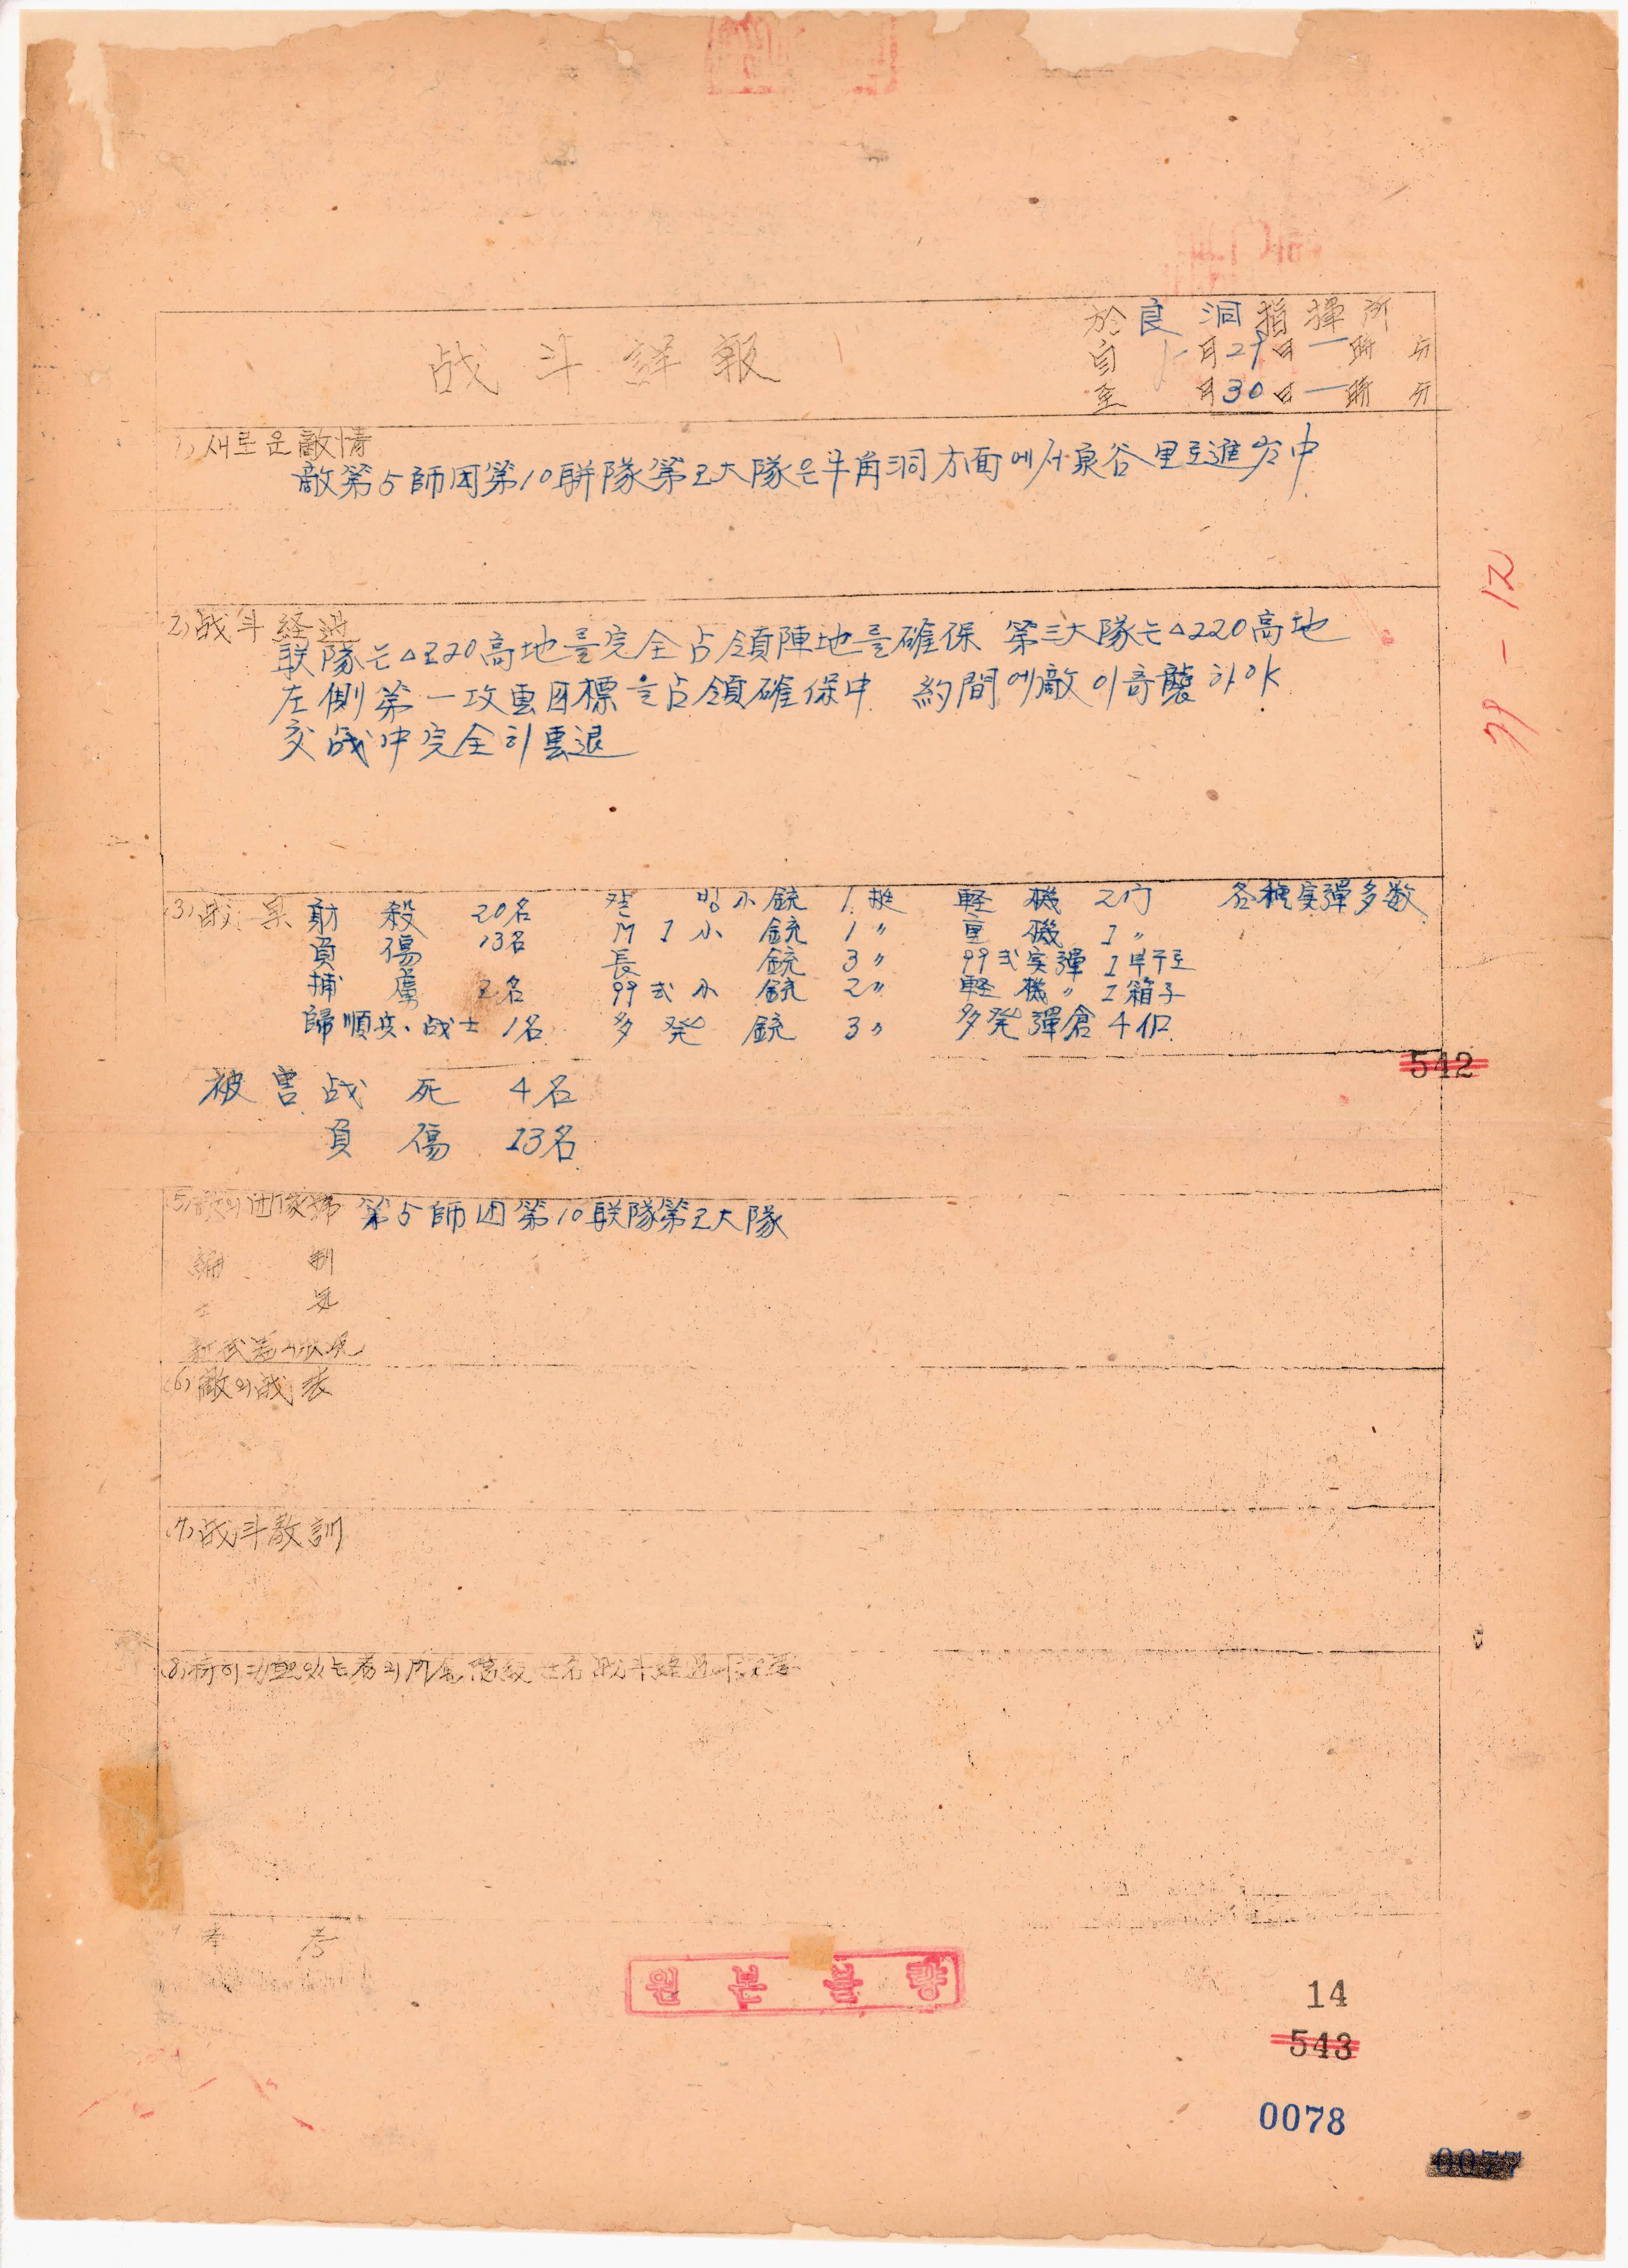 戰斗詳報
於良洞指揮所
自 月29日一時 分
至 月30日一時 分
1) 새로운敵情
敵第5師団第10聯隊第2大隊은牛角洞方面에서泉谷里로進出中
2) 战斗経過
联隊는△220高地를完全占領陣地를確保 第三大隊는△220高地
左側第一攻擊目標를占領確保中 約間에敵이奇襲하야
交战中完全히擊退
(3) 战果 射殺 20名 칼빙小銃 1挺 軽機 2门 各種実彈多数
負傷 13名 M1小銃 1〃 重機 1〃
長銃 3〃 99式実彈
捕虜 2名 99式小銃 2〃 軽機〃 1箱子
歸順兵·战士 1名 多発銃 3〃 多発彈倉 4個
542
被害 战死 4名
負傷 13名
5) 敵의 第5師団第10联隊第2大隊
編制
士気
(6) 敵의战法
(7) 战斗敎訓
参考
원본불량
14
543
0078
0077